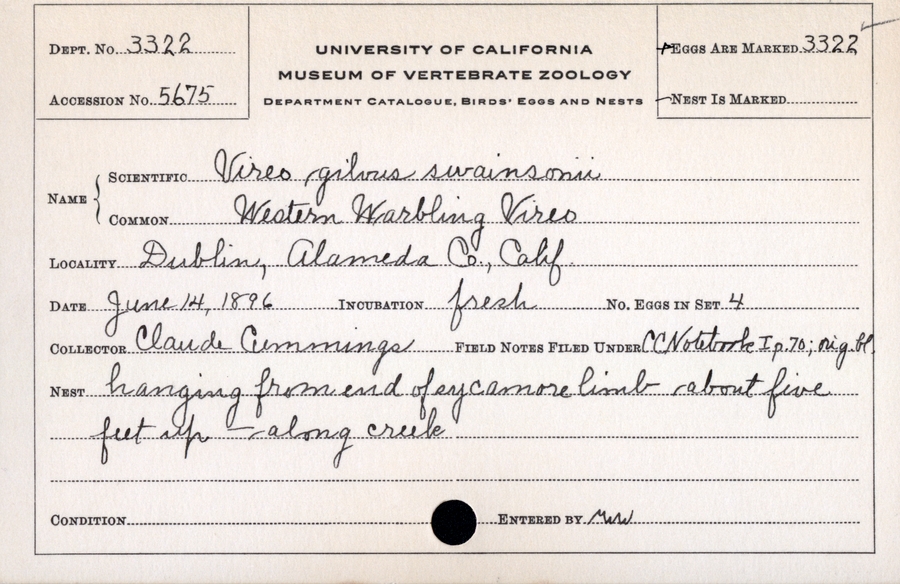 Dept. No. 3322
Accession No. 5675
UNIVERSITY OF CALIFORNIA
MUSEUM OF VERTEBRATE ZOOLOGY
Department Catalogue, Birds' Eggs and Nests
Eggs Are Marked 3322
Nest Is Marked
Name Scientific Vireo gilvus swainsonii
Common Western Warbling Vireo
Locality Dublin, Alameda Co., Calif.
Date June 14, 1896 Incubation fresh No. Eggs in Set 4
Collector Claude Cummings Field Notes Filed Under CC Notebook I p. 70; orig. bl.
Nest hanging from end of sycamore limb about five
feet up — along creek
Condition Entered by